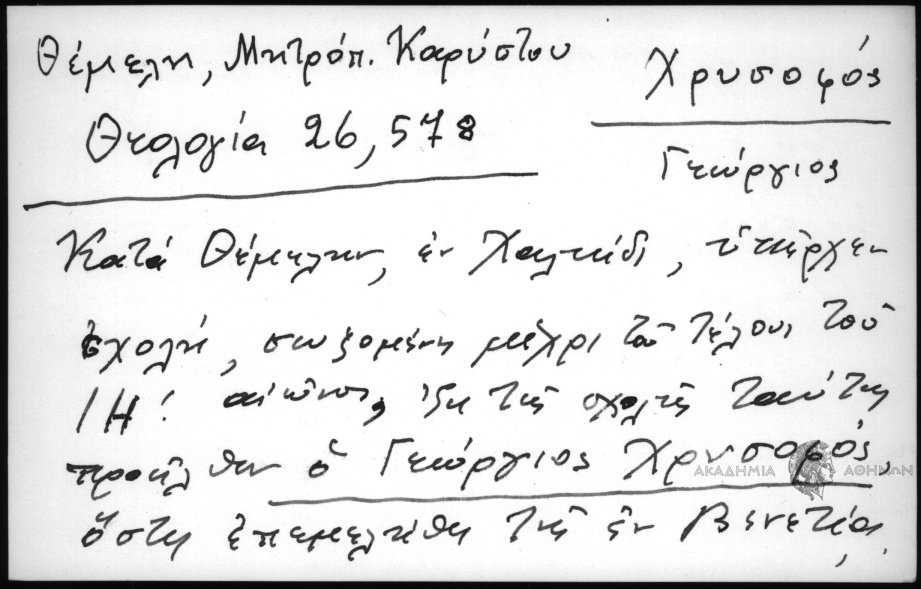 Θέμελη, Μητρόπ. Καρύστου
Θεολογία 26, 578
Χρυσοφός
Γεώργιος
Κατά Θέμελην, ἐν Χαλκίδι, ὑπῆρχεν
σχολή, σωζομένη μέχρι τοῦ τέλους τοῦ
ΙΗ! αἰῶνος, ἐκ τῆς σχολῆς ταύτης
προῆλθεν ὁ Γεώργιος Χρυσοφός,
ὅστις ἐπεμελήθη τῆς ἐν Βενετίᾳ
ΑΚΑΔΗΜΙΑ ΑΘΗΝΩΝ